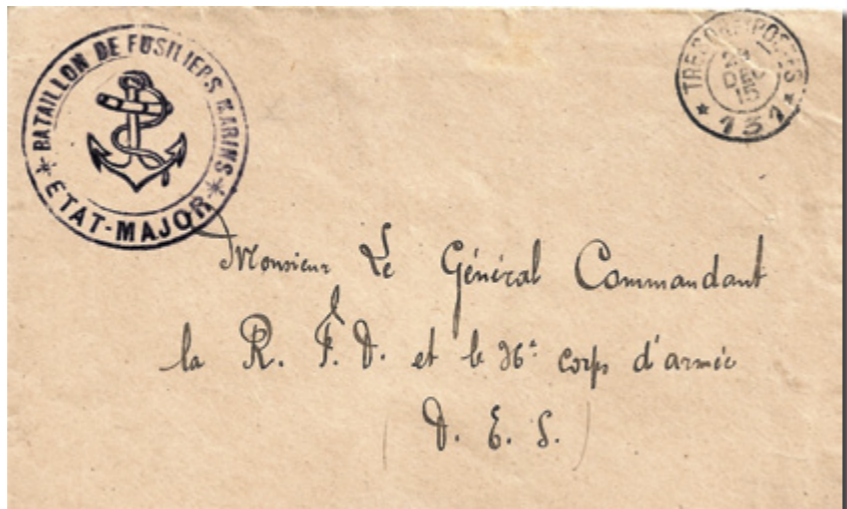 * BATAILLON DE FUSILIERS MARINS *
ETAT-MAJOR
TRESOR ET POSTES
DEC
15
* 131 *
Monsieur Le Général Commandant
la R. F. D. et le 36e corps d'armée
(D. E. S.)